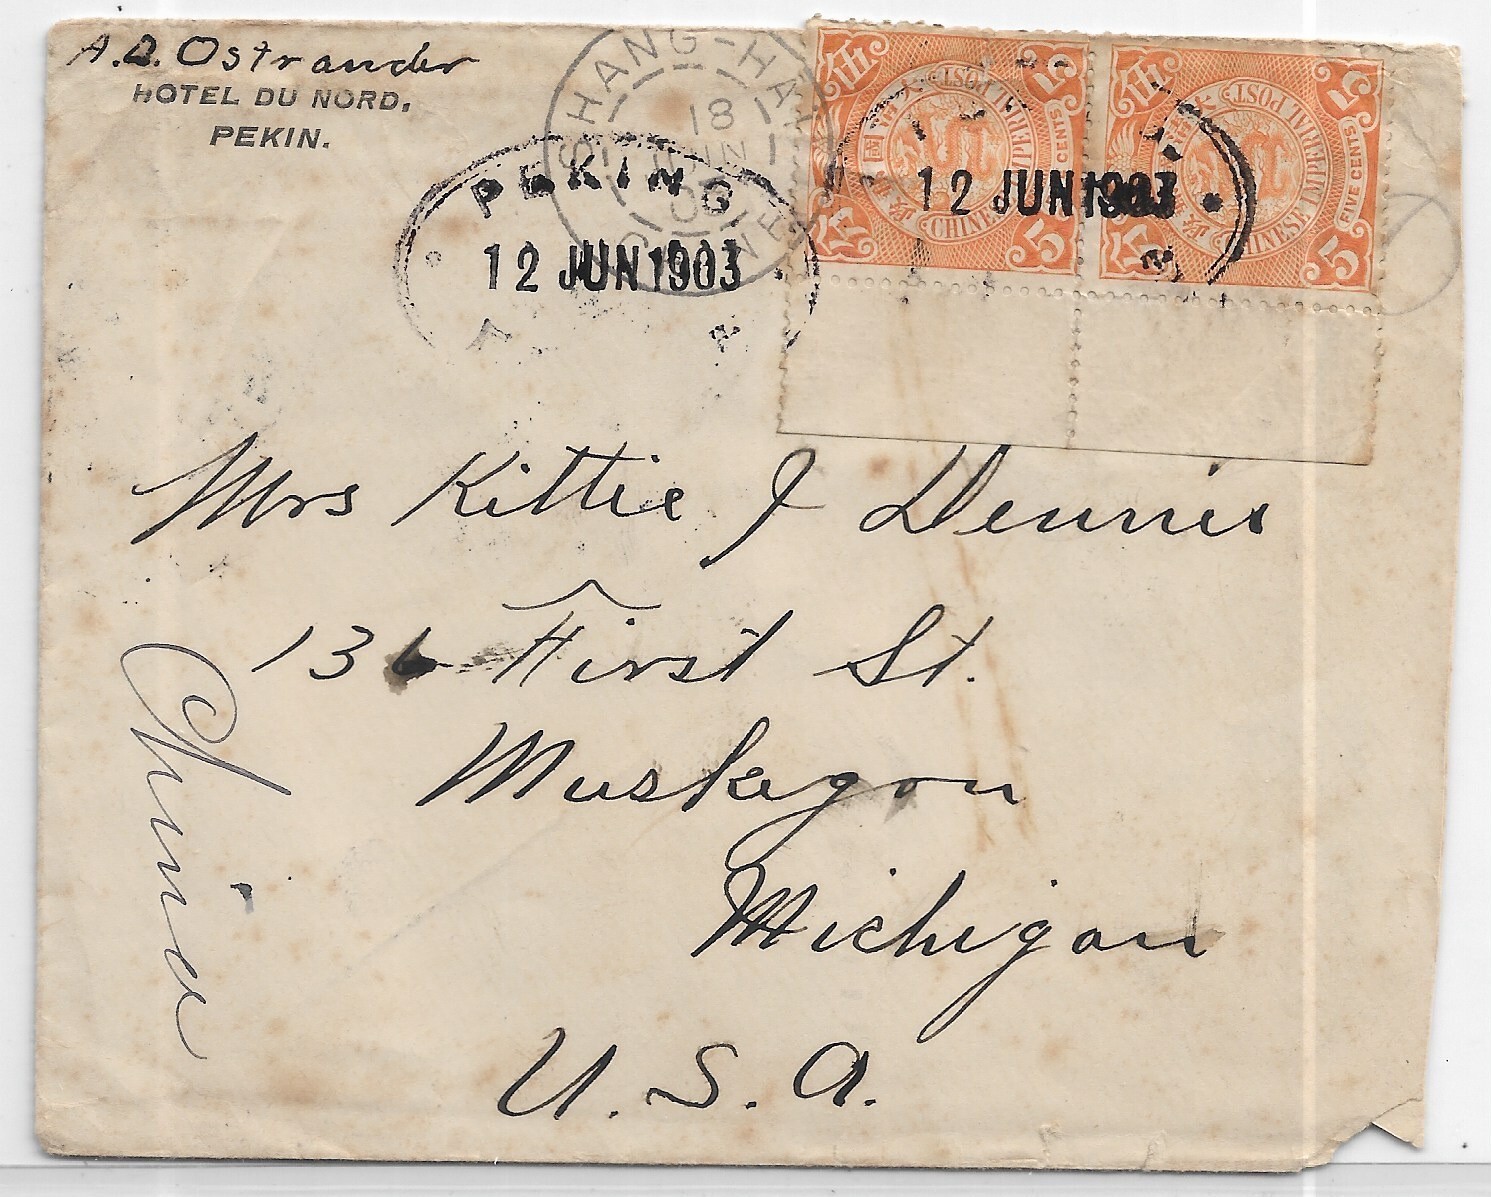 A.D. Ostrander
HOTEL DU NORD,
PEKIN.
SHANG-HAI
18
JUIN
03
CHINE
PEKING
12 JUN 1903
12 JUN 1903
CHINESE IMPERIAL POST
5
5
FIVE CENTS
CHINESE IMPERIAL POST
5
5
FIVE CENTS
Mrs Kittie J Dennis
136 First St.
Muskegon
Michigan
U.S.A.
China